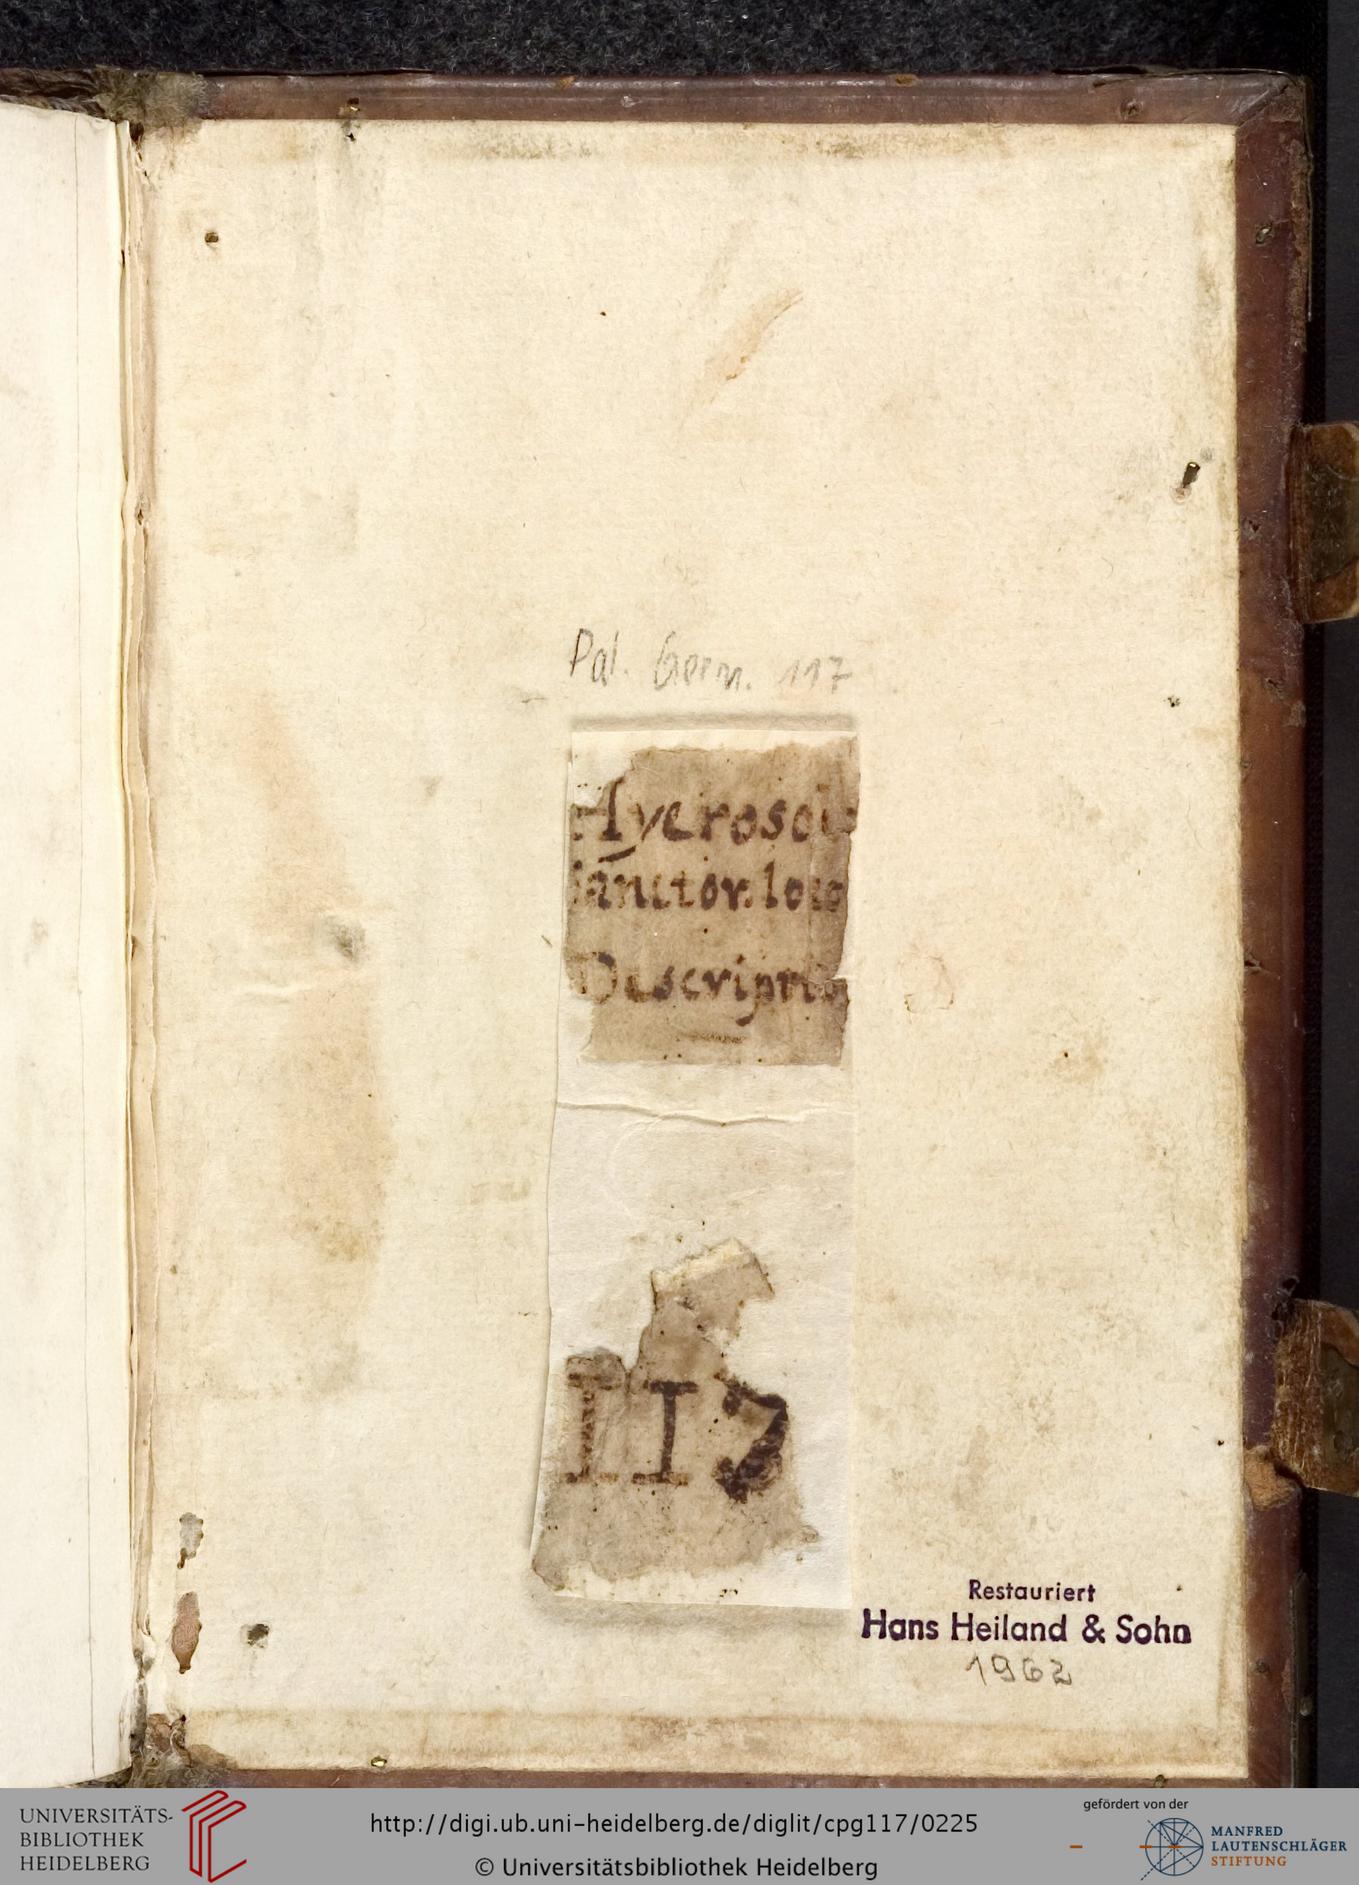 Pal. Germ. 117
Hyerosol:
sanctor. loco
Descriptio
117
Restauriert
Hans Heiland & Sohn
1962
UNIVERSITÄTS-
BIBLIOTHEK
HEIDELBERG
http://digi.ub.uni-heidelberg.de/diglit/cpg117/0225
© Universitätsbibliothek Heidelberg
gefördert von der
MANFRED
LAUTENSCHLÄGER
STIFTUNG